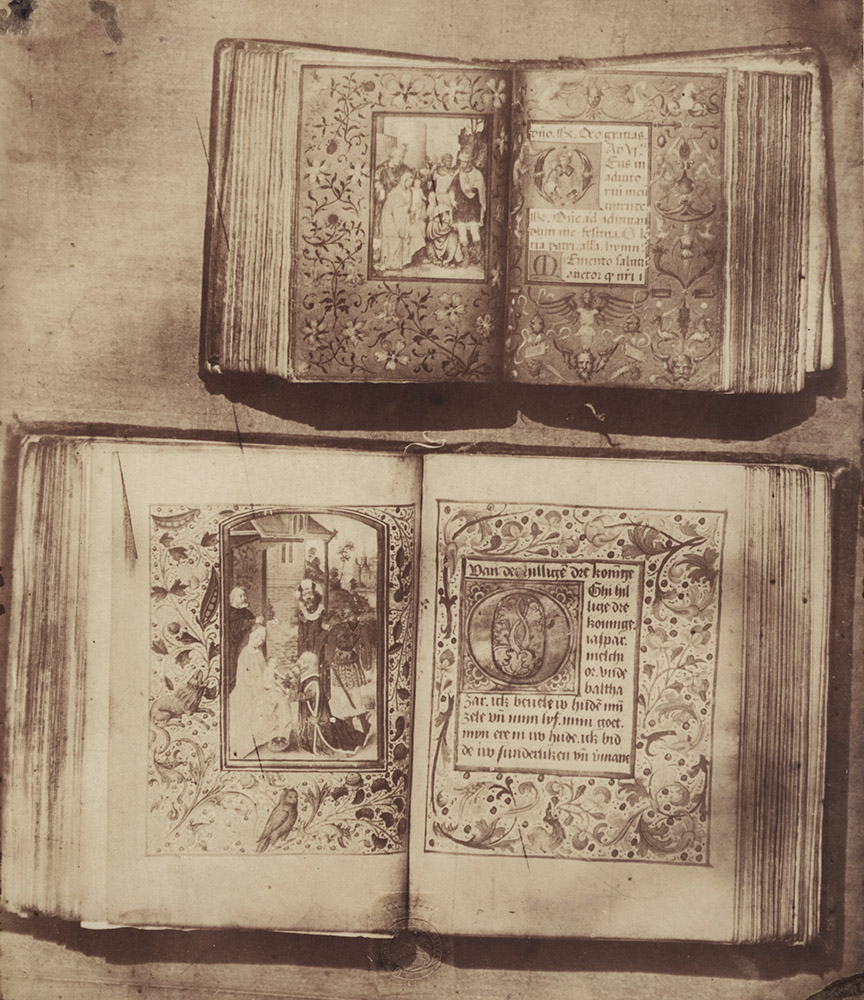 dn̄o. ℟. Deo gratias.
Ad Vi
Eus in
adiuto
riū meū
intende
℟. Dn̄e ad adiuuan
dum me festina. Glo
ria patri. alla. hymn
Emento saluti
auctor q nr̄i i
Van dē hilligē dre konīge
Ghi hil
lige dre
koninge.
iaspar.
melchi
or. vn̄de
baltha
zar. ick beuele iv hudē mī
zele vn̄ minn lyf. minn goet.
myn ere in iw hude. ick bid
de iw sunderliken vn̄